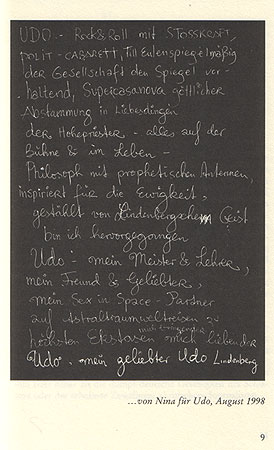 UDO - Rock & Roll mit STOSSKRAFT,
POLIT-CABARETT, Till Eulenspiegelmäßig
der Gesellschaft den Spiegel vor-
haltend, Supercasanova göttlicher
Abstammung in Liebesdingen
der Hohepriester - alles auf der
Bühne & im Leben -
Philosoph mit prophetischen Antennen,
inspiriert für die Ewigkeit,
gestählt von Lindenbergschem Geist
bin ich hervorgegangen
Udo - mein Meister & Lehrer,
mein Freund & Geliebter,
mein Sex in Space - Partner
auf Astraltraumweltreisen zu
höchsten Ekstasen mich liebender
"Udo", mein geliebter Udo Lindenberg
...von Nina für Udo, August 1998
9